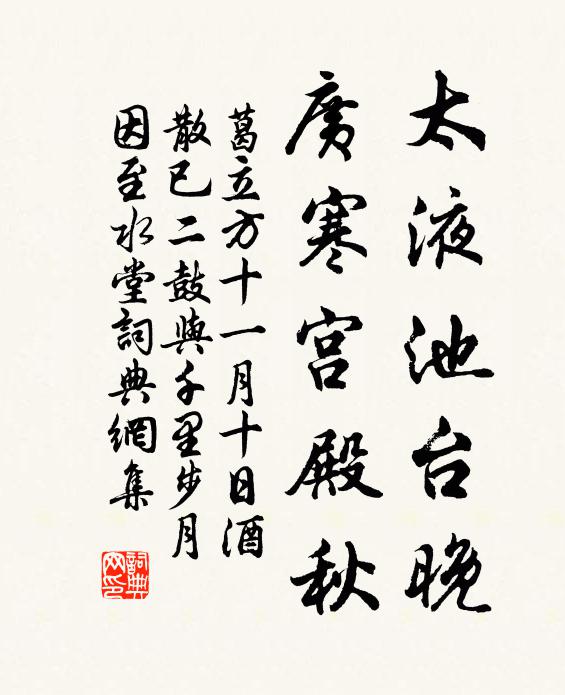 太液池台晚
廣寒宮殿秋
葛立方十一月十日酒
散已二鼓與千里步月
因至水堂詞典網集
詞典
网印